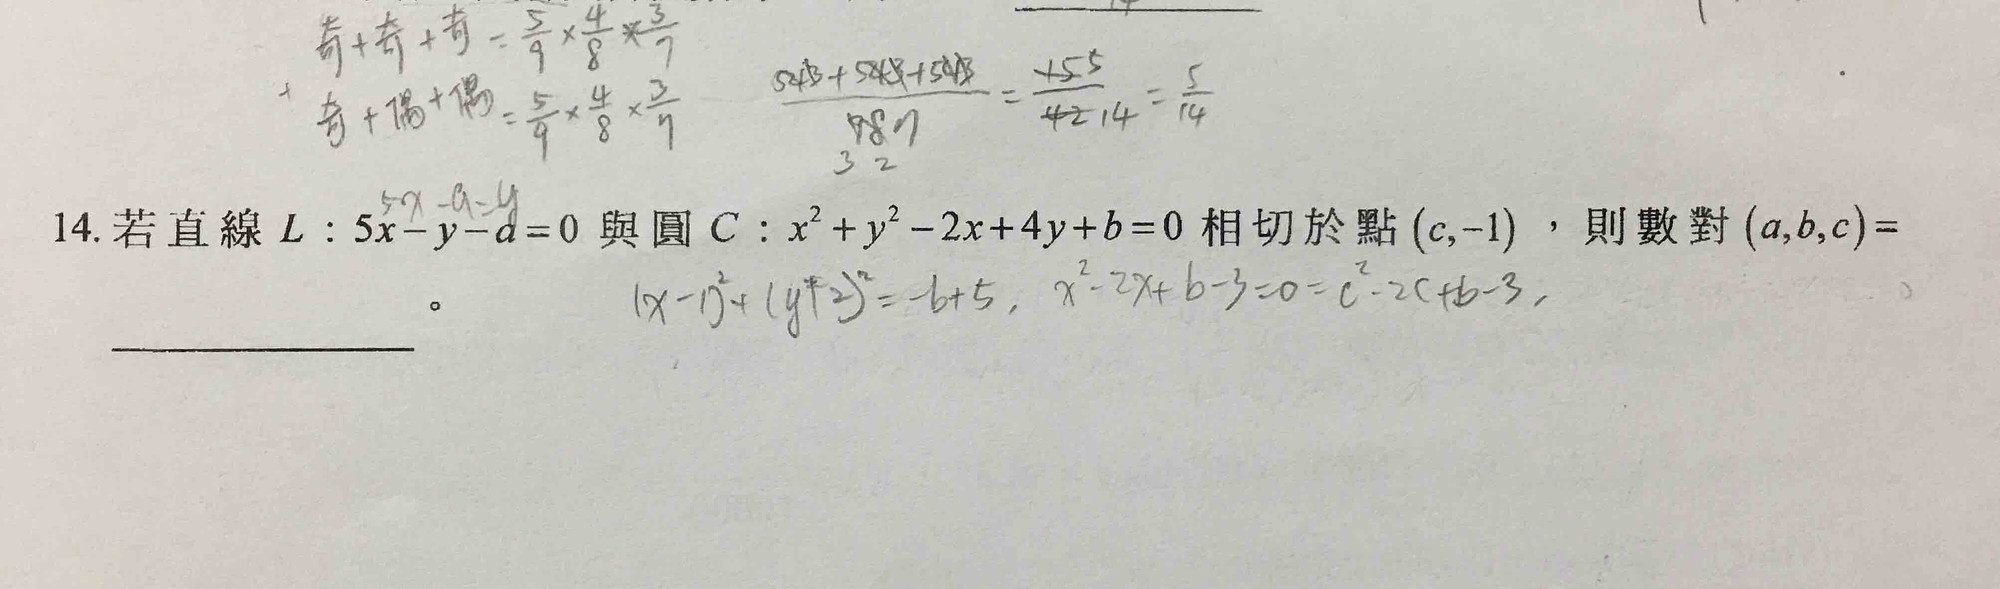 奇+奇+奇 = 5/9 × 4/8 × 3/7
+ 奇+偶+偶 = 5/9 × 4/8 × 3/7
= 5/14
5x-a-y
14. 若直線 L：5x-y-a=0 與圓 C：x²+y²-2x+4y+b=0 相切於點 (c,-1)，則數對 (a,b,c)=
。
(x-1)²+(y+2)²=-b+5, x²-2x+b-3=0=c²-2c+b-3,